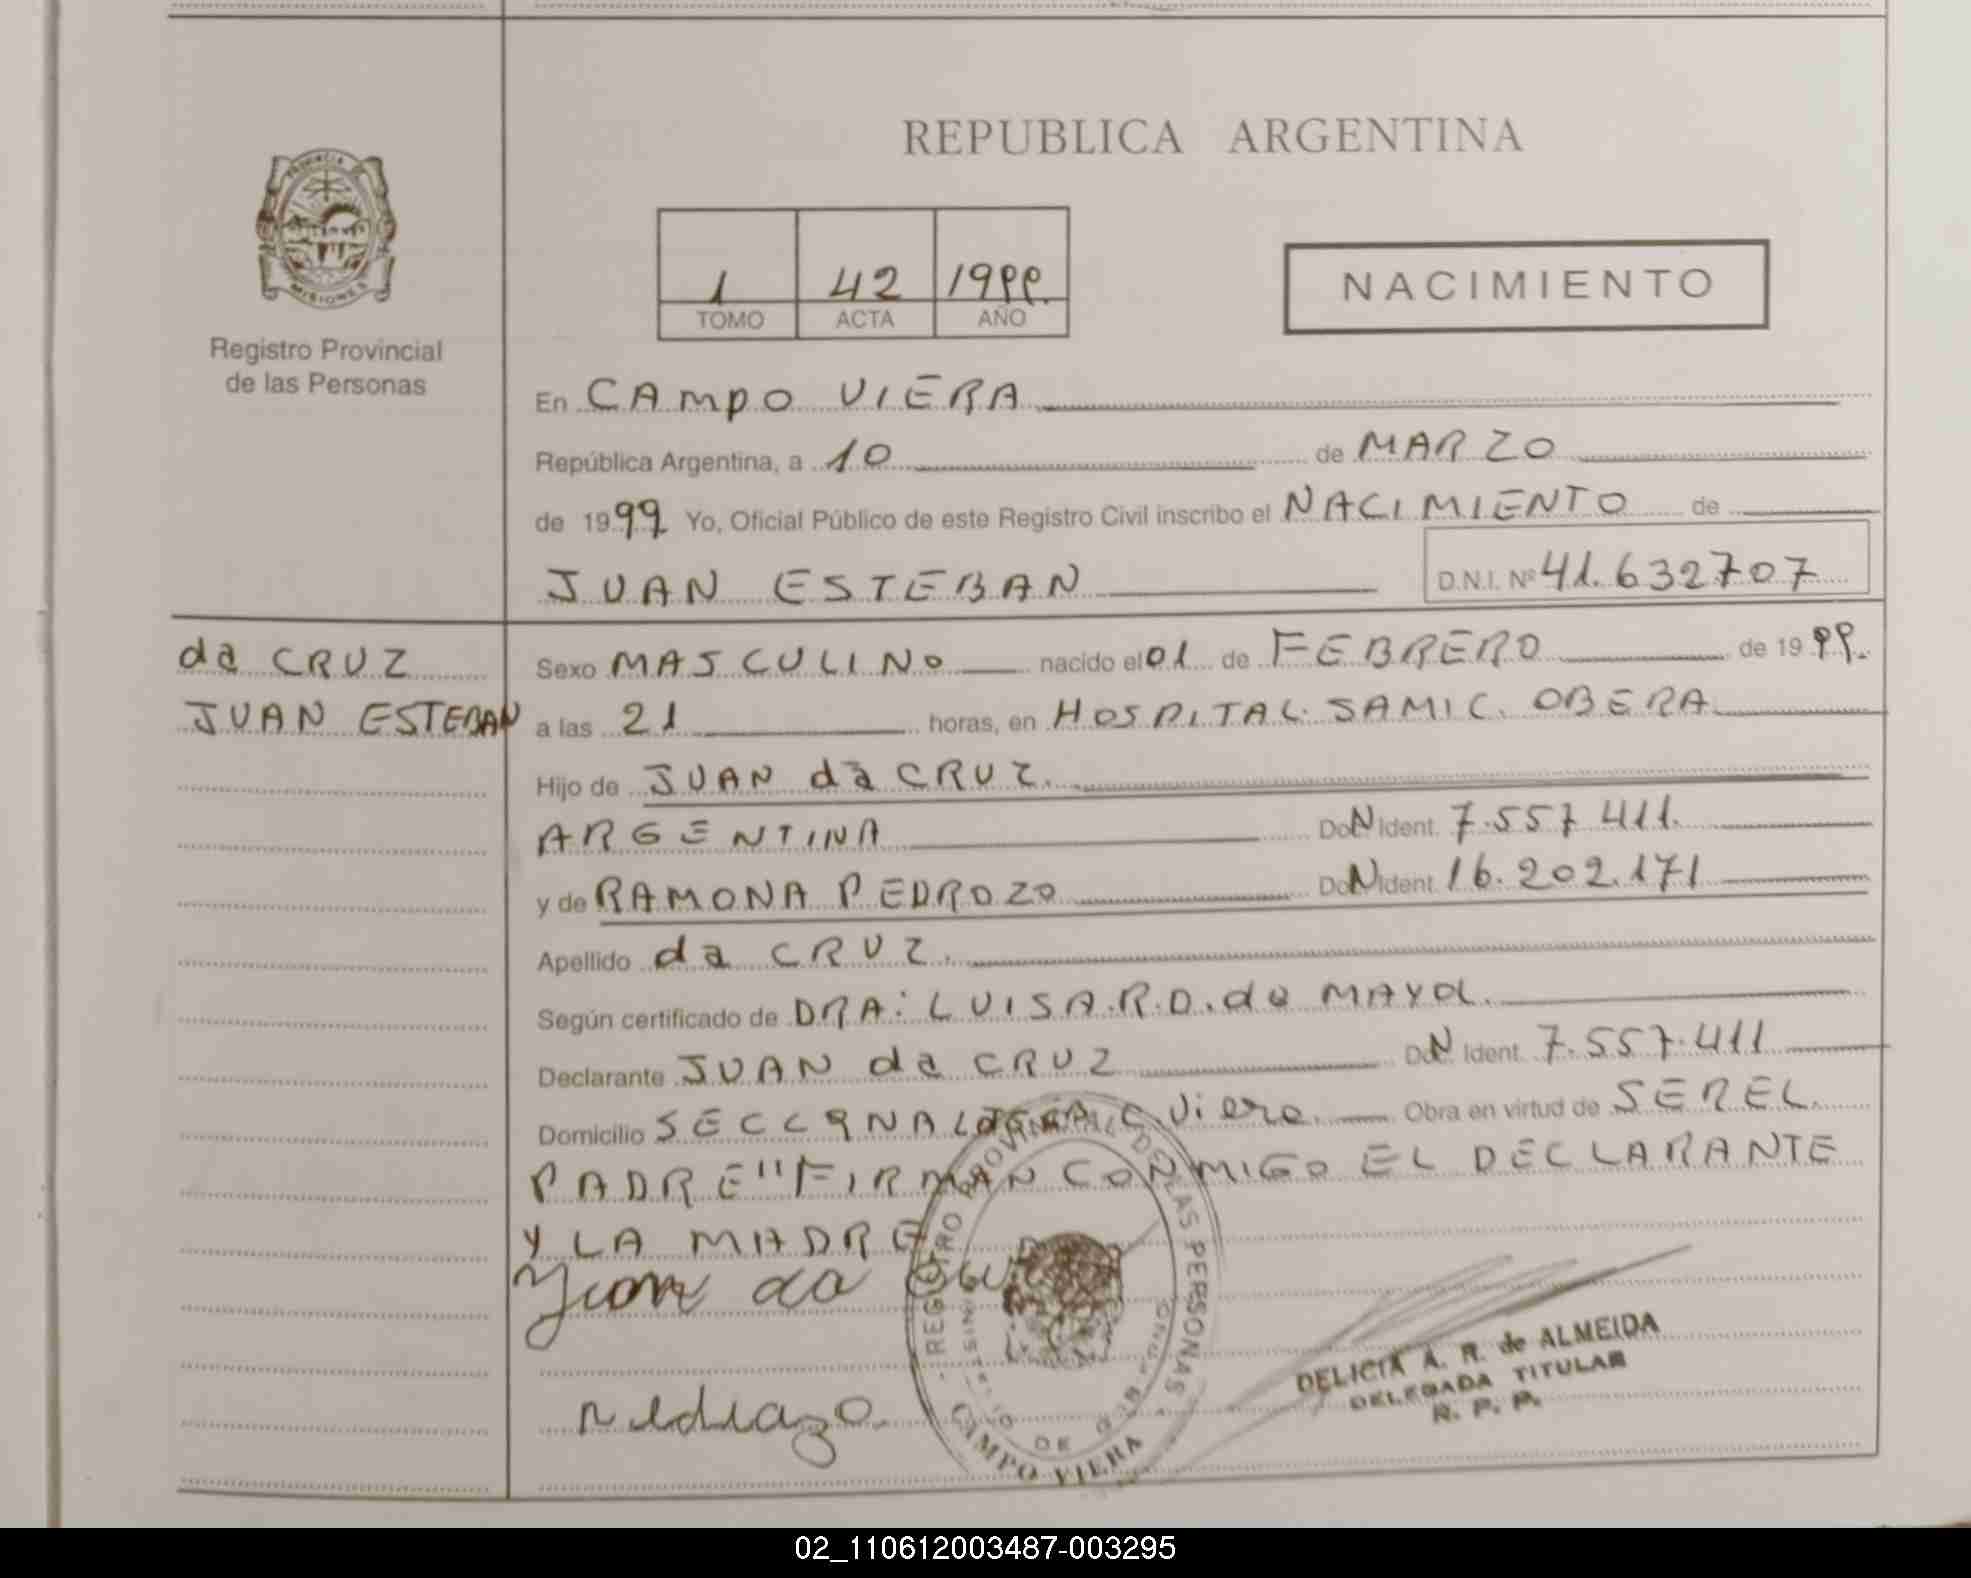 REPUBLICA ARGENTINA
PROVINCIA DE
MISIONES
Registro Provincial
de las Personas
1 42 1999.
TOMO ACTA AÑO
NACIMIENTO
En CAMPO VIERA
República Argentina, a 10 de MARZO
de 1999 Yo, Oficial Público de este Registro Civil inscribo el NACIMIENTO de
JUAN ESTEBAN D.N.I. Nº 41.632707
da CRUZ
JUAN ESTEBAN
Sexo MASCULINO nacido el 01 de FEBRERO de 1999.
a las 21 horas, en HOSPITAL SAMIC. OBERA
Hijo de JUAN da CRUZ.
ARGENTINA Doc Ident. 7.557.411.
y de RAMONA PEDROZO Doc Ident. 16.202.171
Apellido da CRUZ.
Según certificado de DRA: LUISA.R.D. de MAYOL.
Declarante JUAN da CRUZ Doc Ident. 7.557.411
Domicilio C. Viera. Obra en virtud de SEREL.
PADRE" FIRMAN CONMIGO EL DECLARANTE
Y LA MADRE
Juan da
REGISTRO PROVINCIAL DE LAS PERSONAS
CAMPO VIERA
DELICIA A. R. de ALMEIDA
DELEGADA TITULAR
R. P. P.
02_110612003487-003295